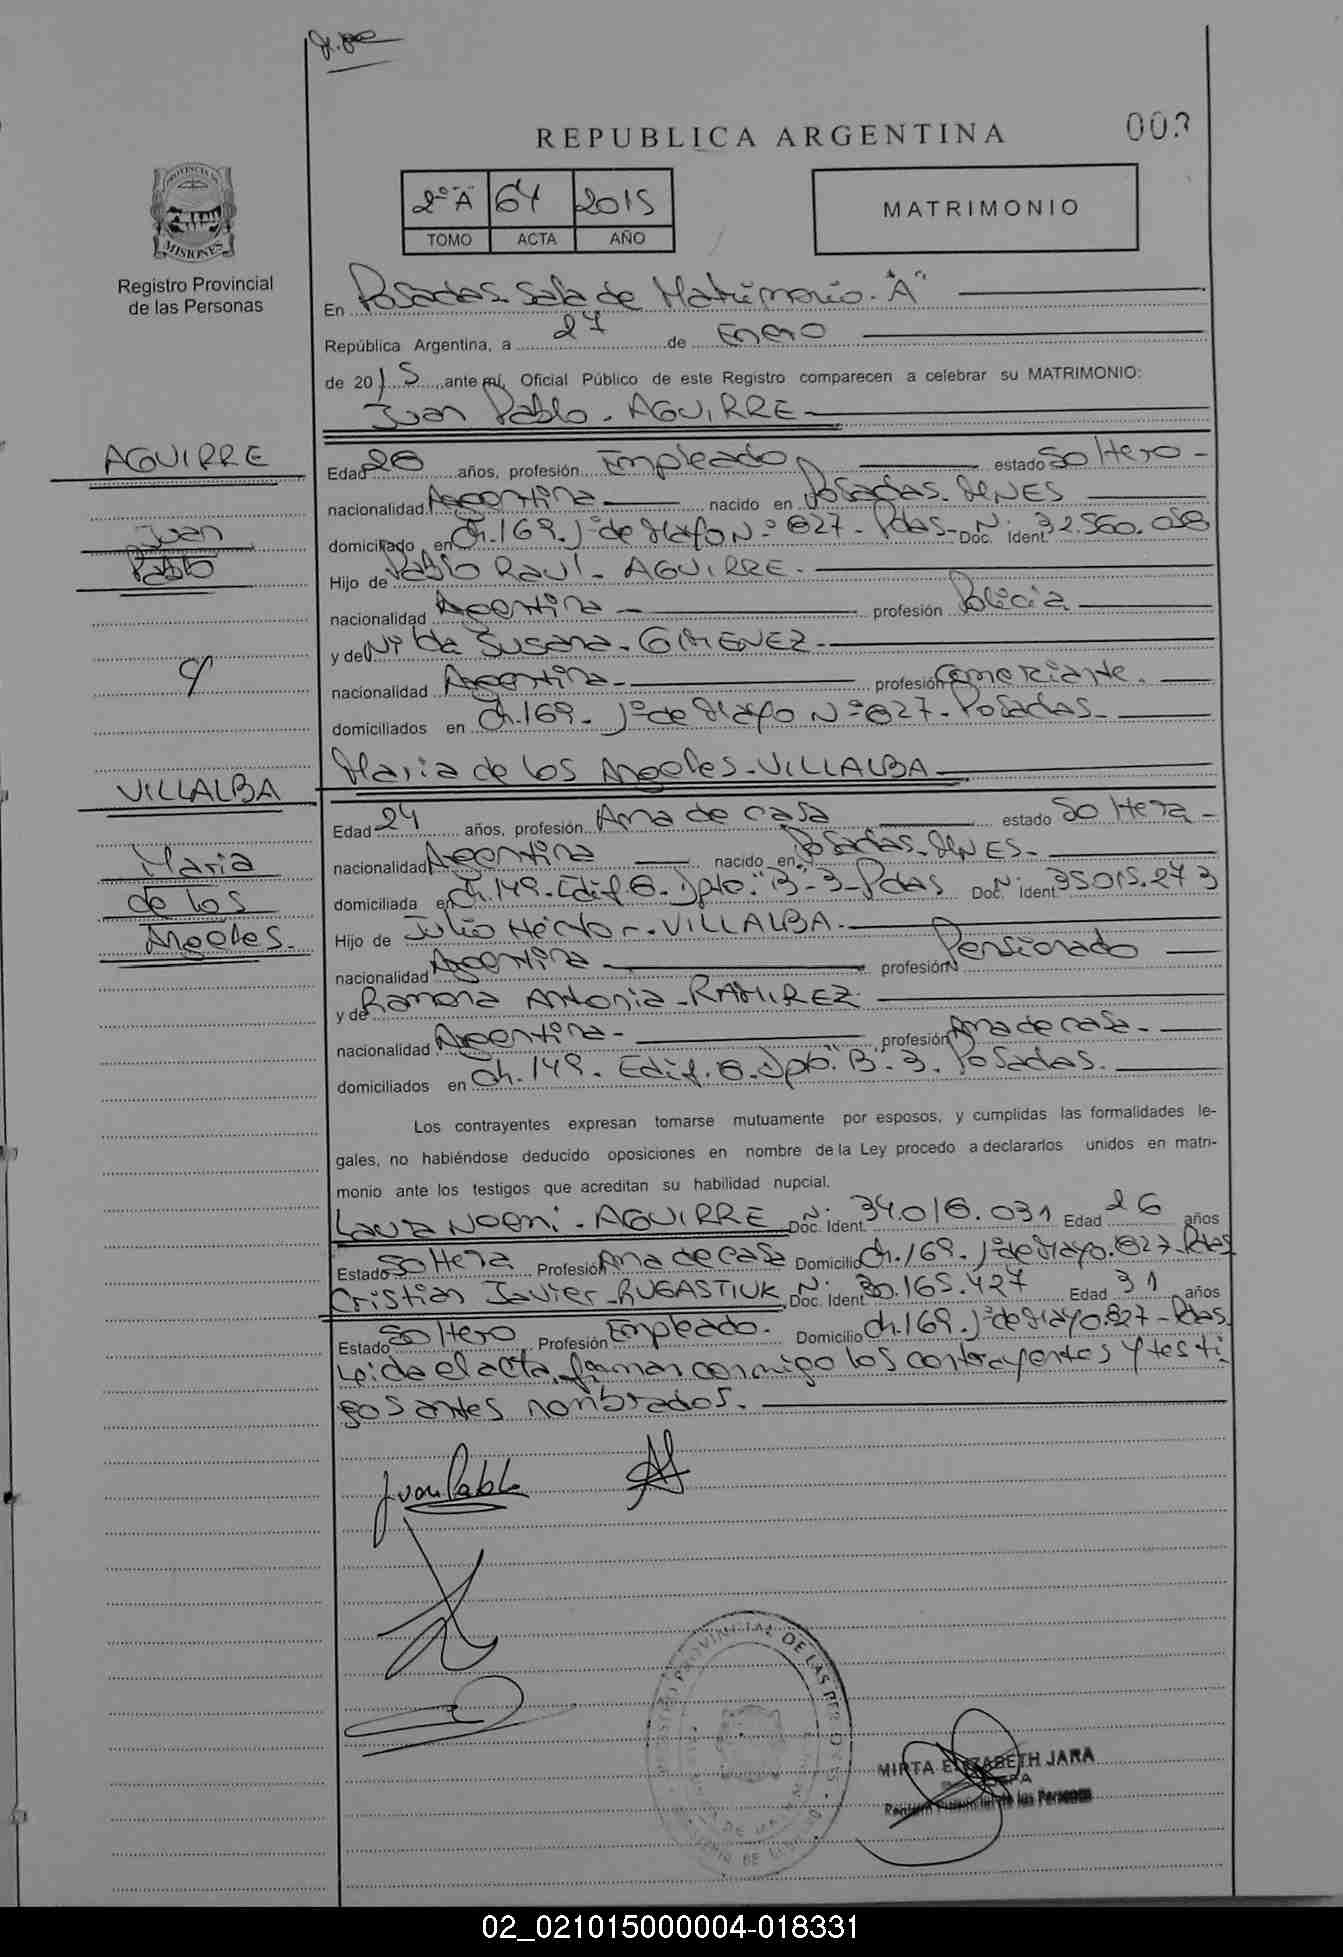 REPUBLICA ARGENTINA
002
2º "A" 64 2015
TOMO ACTA AÑO
MATRIMONIO
PROVINCIA DE
MISIONES
Registro Provincial
de las Personas
En Posadas. Sala de Matrimonio. "A"
República Argentina, a 27 de Enero
de 2015 ante mí, Oficial Público de este Registro comparecen a celebrar su MATRIMONIO:
Juan Pablo. AGUIRRE
AGUIRRE
Juan
Pablo
Edad 28 años, profesión Empleado estado Soltero
nacionalidad Argentina nacido en Posadas. MNES
domiciliado en Ch. 169. 1º de Mayo Nº 827. Pdas. Doc. Ident. Nº 32.560.058
Hijo de Pablo Raúl. AGUIRRE.
nacionalidad Argentina profesión Policia
y de Nilda Susana. GIMENEZ.
nacionalidad Argentina profesión Comerciante.
domiciliados en Ch. 169. 1º de Mayo Nº 827. Posadas.
Maria de los Angeles. VILLALBA
c/
VILLALBA
Maria
de los
Angeles.
Edad 24 años, profesión Ama de casa estado Soltera
nacionalidad Argentina nacido en Posadas. MNES.
domiciliada en Ch. 149. Edif. 6. Dpto. "B". 3. Pdas Doc. Ident. Nº 35.015.273
Hijo de Julio Héctor. VILLALBA.
nacionalidad Argentina profesión Pensionado
y de Ramona Antonia. RAMIREZ.
nacionalidad Argentina profesión Ama de casa.
domiciliados en Ch. 149. Edif. 6. Dpto. "B". 3. Posadas.
Los contrayentes expresan tomarse mutuamente por esposos, y cumplidas las formalidades le-
gales, no habiéndose deducido oposiciones en nombre de la Ley procedo a declararlos unidos en matri-
monio ante los testigos que acreditan su habilidad nupcial.
Laura Noemi. AGUIRRE Doc. Ident. Nº 34.016.031 Edad 26 años
Estado Soltera Profesión Ama de casa Domicilio Ch. 169. 1º de Mayo. 827. Pdas
Cristian Javier. RUGASTIUK Doc. Ident. Nº 30.165.427 Edad 31 años
Estado Soltero Profesión Empleado. Domicilio Ch. 169. 1º de Mayo 827. Pdas.
Leida el acta, firman conmigo los contrayentes y testi
gos antes nombrados.
Juan Pablo
MIRTA ELIZABETH JARA
Registro Provincial de las Personas
02_021015000004-018331